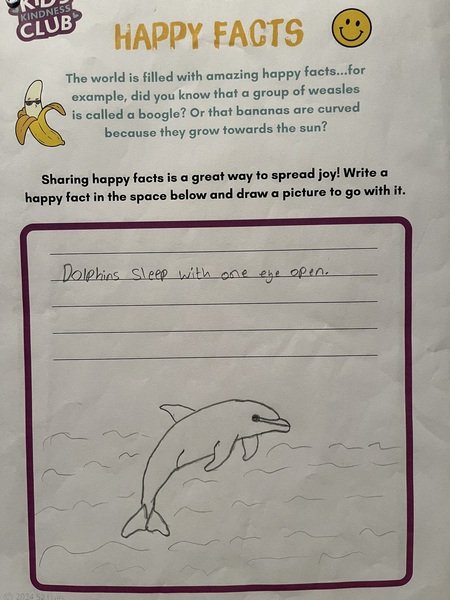 KIDS
KINDNESS
CLUB
HAPPY FACTS
The world is filled with amazing happy facts...for
example, did you know that a group of weasles
is called a boogle? Or that bananas are curved
because they grow towards the sun?
Sharing happy facts is a great way to spread joy! Write a
happy fact in the space below and draw a picture to go with it.
Dolphins sleep with one eye open.
© 2024